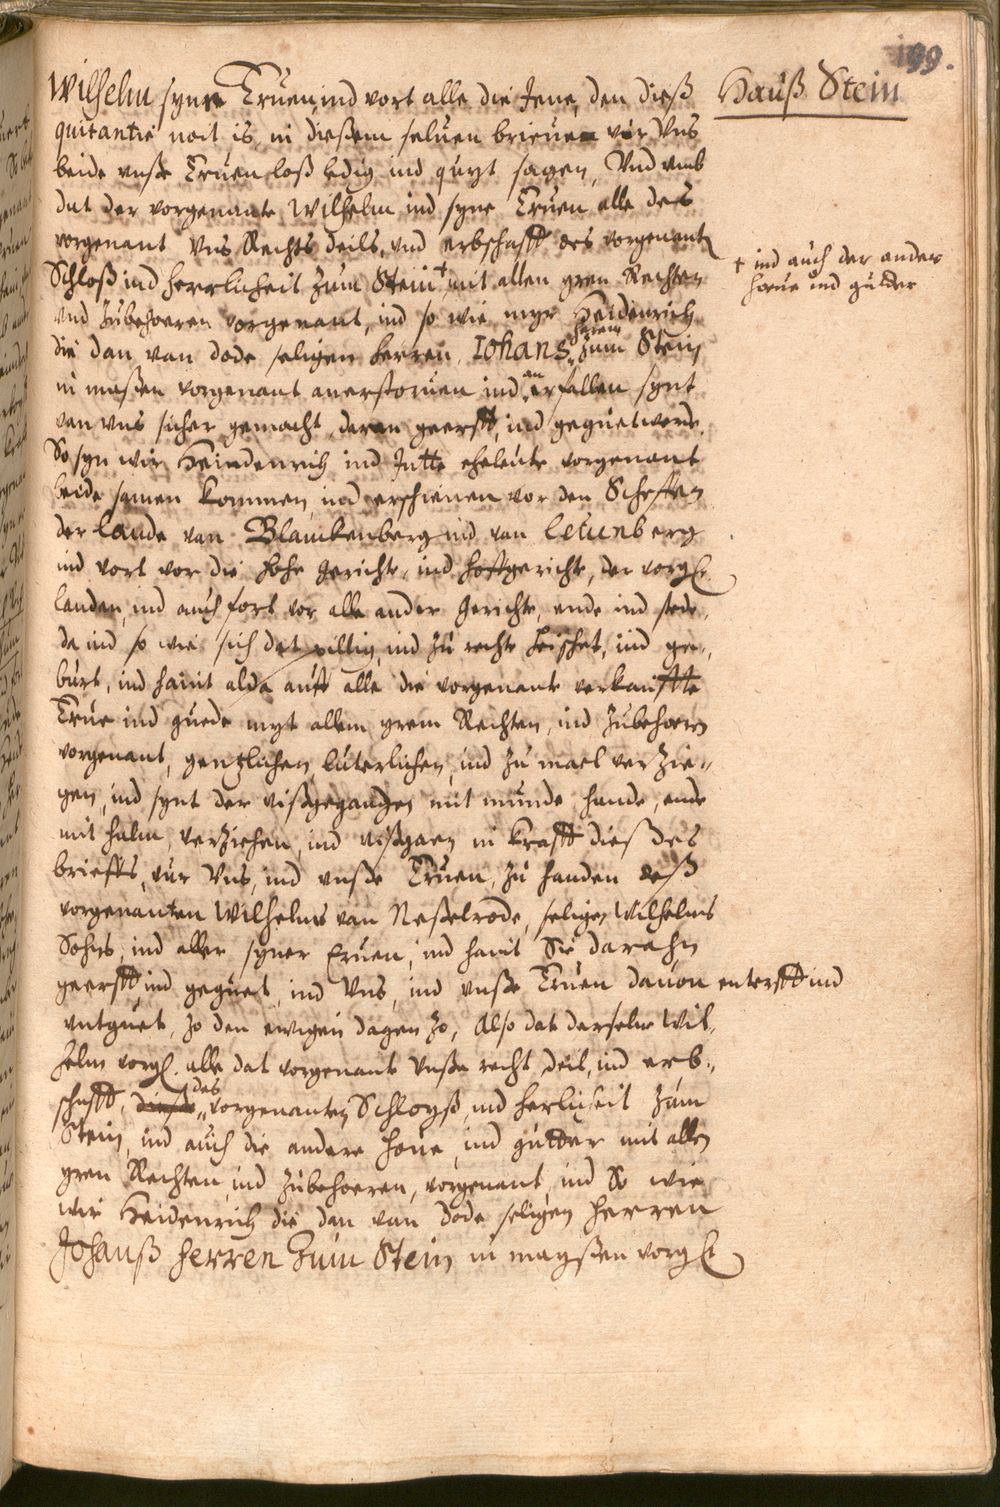 199.
Hauß Stein
Wilhelm syne Eruen, ind vort alle die Jene, den dieß
quitantie noit is, in dießem seluen brieue vur Vns
beide vnße Eruen loß ledig ind quyt sagen, Vnd vmb
dat der vorgenante Wilhelm ind syne Eruen alle des
vorgenant Vns Rechts deils, vnd erbschafft des vorgenenten
Schloß ind herrlicheit zum Stein + mit allen yren Rechten
+ ind auch der ander
houe ind gudder
vnd zubehoeren vorgenant, ind so wie myr Heidenrich
die dan van dode seligen herren Johans herren zum Stein
in maßen vorgenant anerstoruen ind an erfallen synt
van vns sicher gemacht, daran geerfft, ind geguetwerde.
So syn wir Heindenrich ind Jutte eheleute vorgenant
beide samen kommen, ind erschienen vor den Scheffen
der lande van Blanckenberg ind van leeunberg
ind vort vor die hohe gerichte, ind hoffgerichte, der vorg.
landen, ind auch fort vor alle ander gerichte, ende ind stede,
da ind so wie sich dat villig, ind zu rechte heischet, ind ge,,
burt, ind haint alda auff alle die vorgenante verkauffte
Erue ind guede myt allem yrem Rechten, ind zubehoeren
vorgenant, gentzlichen, luterlichen, ind zu mael verzie,,
gen, ind synt der vißgegangen mit munde, hande, ende
mit halm, verziehen, ind vißgaen in krafft dießdes
brieffs, vur Vns, ind vnße Eruen, zu handen deß
vorgenanten Wilhelms van Neßelrode, seligen Wilhelms
Sohns, ind aller syner Eruen, ind haint Sie darahn
geerfft, ind geguet, ind Vns, ind vnße Eruen dauon enterfft ind
vntguet, zo den ewigen dagen zo, Also dat derselue Wil,
helm vorg. alle dat vorgenante vnße recht, deil, ind erb,,
schafft, dieße des vorgenanten Schloyß, ind herlicheit zum
Stein, ind auch die andere houe, ind gudder mit allen
yren Rechten, ind zubehoeren, vorgenant, ind So wie
wir Heidenrich die dan van dode seligen herren
Johanß herren zum Stein in mayßen vorg.